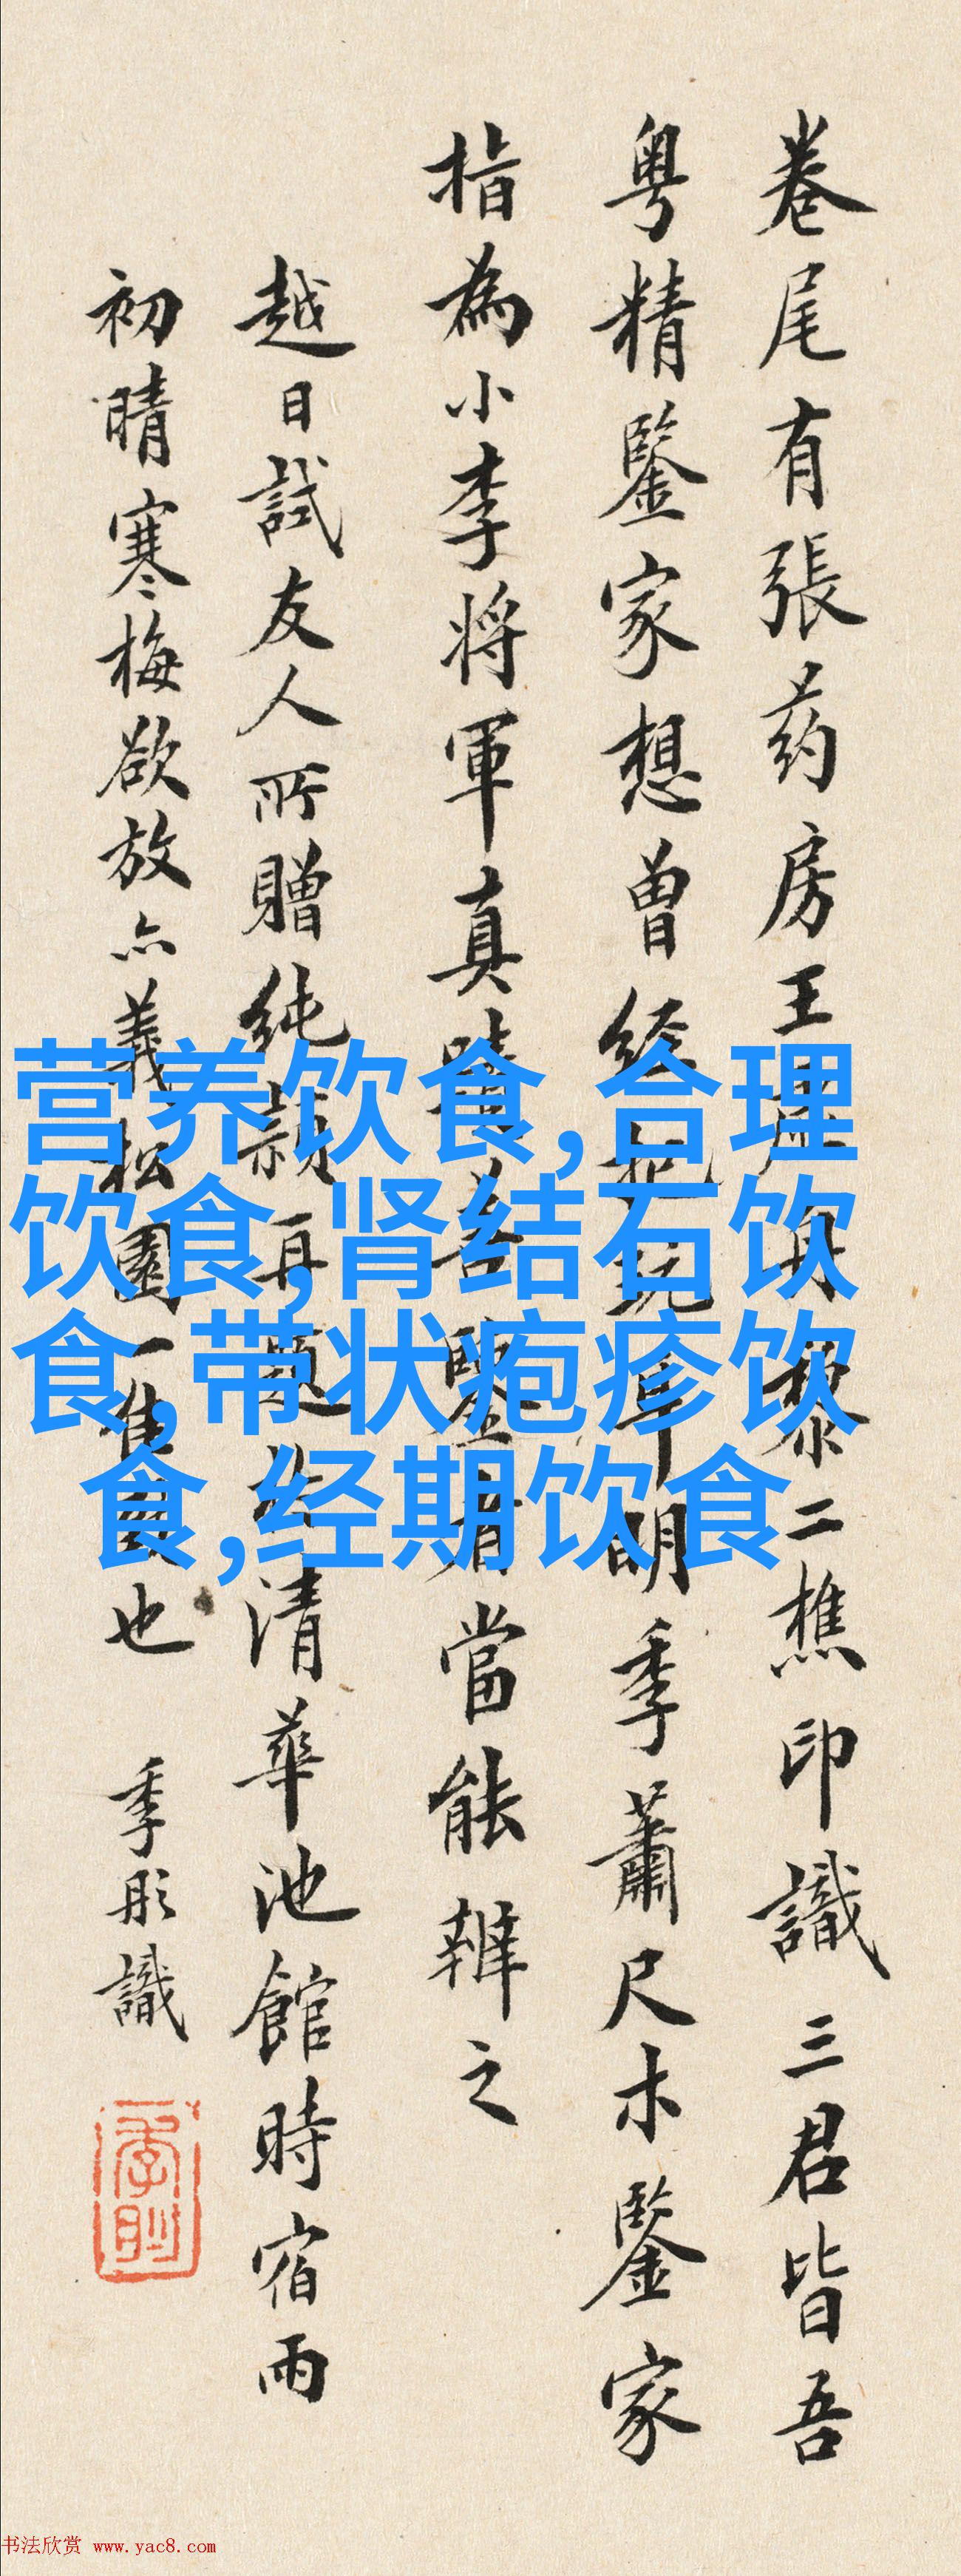 卷尾有張药房王黎二樵印識三君皆吾
粤精鑒家想曾經明季蕭尺木鑒家
指為小李將軍真蹟鑒者當能辨之
越日試友人所贈純穎再題於清華池館時宿雨
初晴寒梅欲放亦義松園一佳也 季彤識
营养饮食,合理
饮食,肾结石饮
食,带状疱疹饮
食,经期饮食
书法欣赏 www.yac8.com